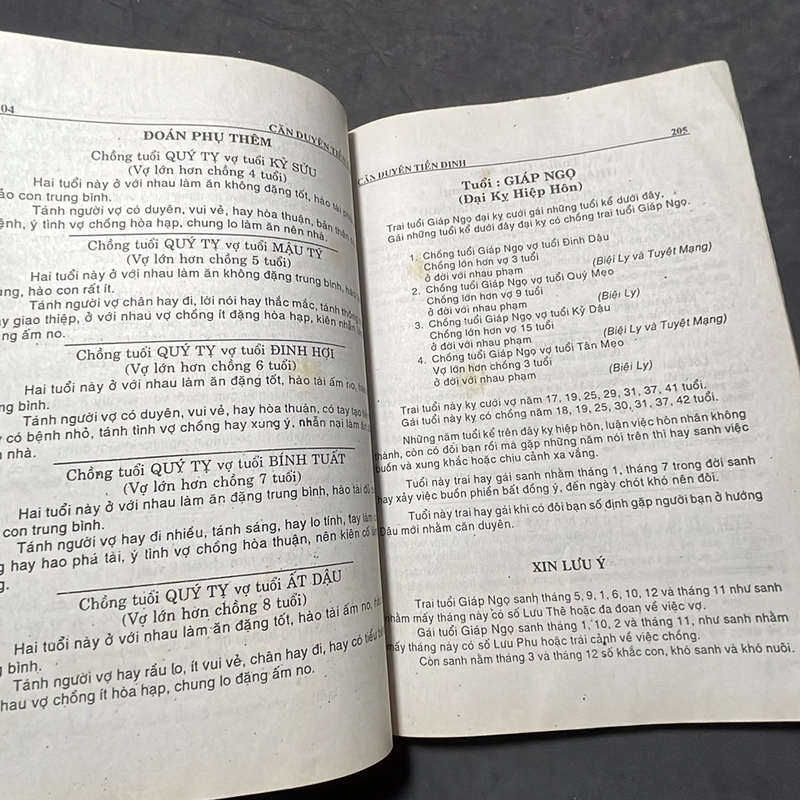 04
CĂN DUYÊN TIỀN
ĐOÁN PHỤ THÊM
Chồng tuổi QUÝ TỴ vợ tuổi KỶ SỬU
(Vợ lớn hơn chồng 4 tuổi)
Hai tuổi này ở với nhau làm ăn không đặng tốt, hào tài
ảo con trung bình.
Tánh người vợ có duyên, vui vẻ, hay hòa thuận, bản thân
ệnh, ý tình vợ chồng hòa hạp, chung lo làm ăn nên nhà.
Chồng tuổi QUÝ TỴ vợ tuổi MẬU TÝ
(Vợ lớn hơn chồng 5 tuổi)
Hai tuổi này ở với nhau làm ăn không đặng trung bình, hào
ung, hào con rất ít.
Tánh người vợ chân hay đi, lời nói hay thắc mắc, tánh
ay giao thiệp, ở với nhau vợ chồng ít đặng hòa hạp, kiên nhẫn
ng ấm no.
Chồng tuổi QUÝ TỴ vợ tuổi ĐINH HỢI
(Vợ lớn hơn chồng 6 tuổi)
Hai tuổi này ở với nhau làm ăn đặng tốt, hào tài ấm no,
ng bình.
Tánh người vợ có duyên, vui vẻ, hay hòa thuận, có tay tạo
có bệnh nhỏ, tánh tình vợ chồng hay xung ý, nhẫn nại làm ăn
nhà.
Chồng tuổi QUÝ TỴ vợ tuổi BÍNH TUẤT
(Vợ lớn hơn chồng 7 tuổi)
Hai tuổi này ở với nhau làm ăn đặng trung bình, hào tài đủ
con trung bình.
Tánh người vợ hay đi nhiều, tánh sáng, hay lo tính, tay làm
g hay hao phá tài, ý tình vợ chồng hòa thuận, nên kiên cố
g.
Chồng tuổi QUÝ TỴ vợ tuổi ẤT DẬU
(Vợ lớn hơn chồng 8 tuổi)
Hai tuổi này ở với nhau làm ăn đặng tốt, hào tài ấm no,
g bình.
Tánh người vợ hay rầu lo, ít vui vẻ, chân hay đi, hay có tiểu
hau vợ chồng ít hòa hạp, chung lo đặng ấm no.
CĂN DUYÊN TIỀN ĐỊNH
205
Tuổi : GIÁP NGỌ
(Đại Kỵ Hiệp Hôn)
Trai tuổi Giáp Ngọ đại kỵ cưới gái những tuổi kể dưới đây,
Gái những tuổi kể dưới đây đại kỵ có chồng trai tuổi Giáp Ngọ.
1. Chồng tuổi Giáp Ngọ vợ tuổi Đinh Dậu
Chồng lớn hơn vợ 3 tuổi
ở đời với nhau phạm (Biệi Ly và Tuyệt Mạng)
2. Chồng tuổi Giáp Ngọ vợ tuổi Quý Mẹo
Chồng lớn hơn vợ 9 tuổi
ở đời với nhau phạm (Biệi Ly)
3. Chồng tuổi Giáp Ngọ vợ tuổi Kỷ Dậu
Chồng lớn hơn vợ 15 tuổi
ở đời với nhau phạm (Biệi Ly và Tuyệt Mạng)
4. Chồng tuổi Giáp Ngọ vợ tuổi Tân Mẹo
Vợ lớn hơn chồng 3 tuổi
ở đời với nhau phạm (Biệi Ly)
Trai tuổi này kỵ cưới vợ năm 17, 19, 25, 29, 31, 37, 41 tuổi.
Gái tuổi này kỵ có chồng năm 18, 19, 25, 30, 31, 37, 42 tuổi.
Những năm tuổi kể trên đây kỵ hiệp hôn, luận việc hôn nhân không
thành, còn có đôi bạn rồi mà gặp những năm nói trên thì hay sanh việc
buồn và xung khắc hoặc chịu cảnh xa vắng.
Tuổi này trai hay gái sanh nhằm tháng 1, tháng 7 trong đời sanh
hay xảy việc buồn phiền bất đồng ý, đến ngày chót khó nên đôi.
Tuổi này trai hay gái khi có đôi bạn số định gặp người bạn ở hướng
Dậu mới nhằm căn duyên.
XIN LƯU Ý
Trai tuổi Giáp Ngọ sanh tháng 5, 9, 1, 6, 10, 12 và tháng 11 như sanh
nhằm mấy tháng này có số Lưu Thê hoặc đa đoan về việc vợ.
Gái tuổi Giáp Ngọ sanh tháng 1, 10, 2 và tháng 11, như sanh nhằm
mấy tháng này có số Lưu Phu hoặc trái cảnh về việc chồng.
Còn sanh nằm tháng 3 và tháng 12 số khắc con, khó sanh và khó nuôi.